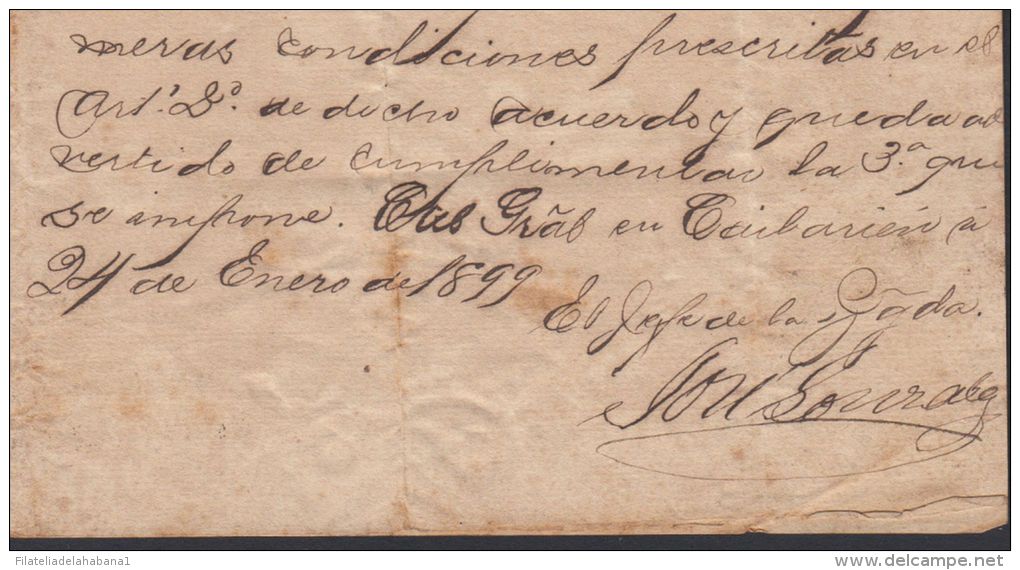 meras condiciones prescritas en el
Artº 2º. de dicho acuerdo y queda ad
vertido de cumplimentar la 3.ª que
se impone. Cuel Gral en Caibarién á
24 de Enero de 1899
El Jefe de la Bgda.
José González
Filateliadelahabana1
www.delcampe.net